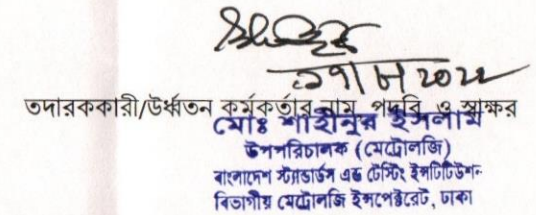 তদারককারী/উর্ধ্বতন কর্মকর্তার নাম পদবি ও স্বাক্ষর
মোঃ শাহীনুর ইসলাম
উপপরিচালক (মেট্রোলজি)
বাংলাদেশ স্ট্যান্ডার্ডস এন্ড টেস্টিং ইনস্টিটিউশন
বিভাগীয় মেট্রোলজি ইন্সপেক্টরেট, ঢাকা